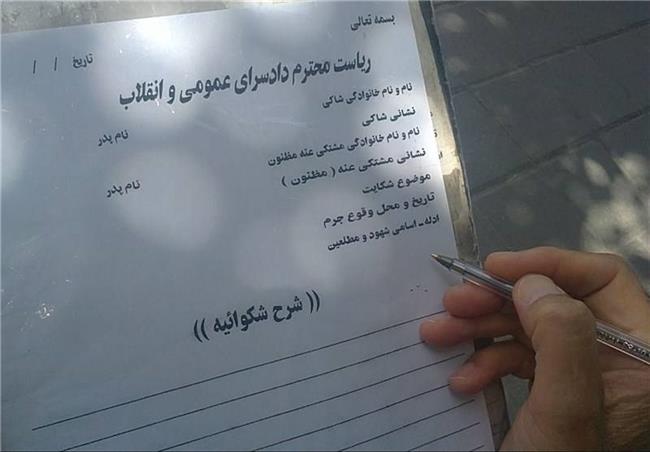 بسمه تعالی
تاریخ / /
ریاست محترم دادسرای عمومی و انقلاب
نام و نام خانوادگی شاکی
نام پدر
نشانی شاکی
نام و نام خانوادگی مشتکی عنه مظنون
نام پدر
نشانی مشتکی عنه ( مظنون )
موضوع شکایت
تاریخ و محل وقوع جرم
ادله ـ اسامی شهود و مطلعین
(( شرح شکوائیه ))